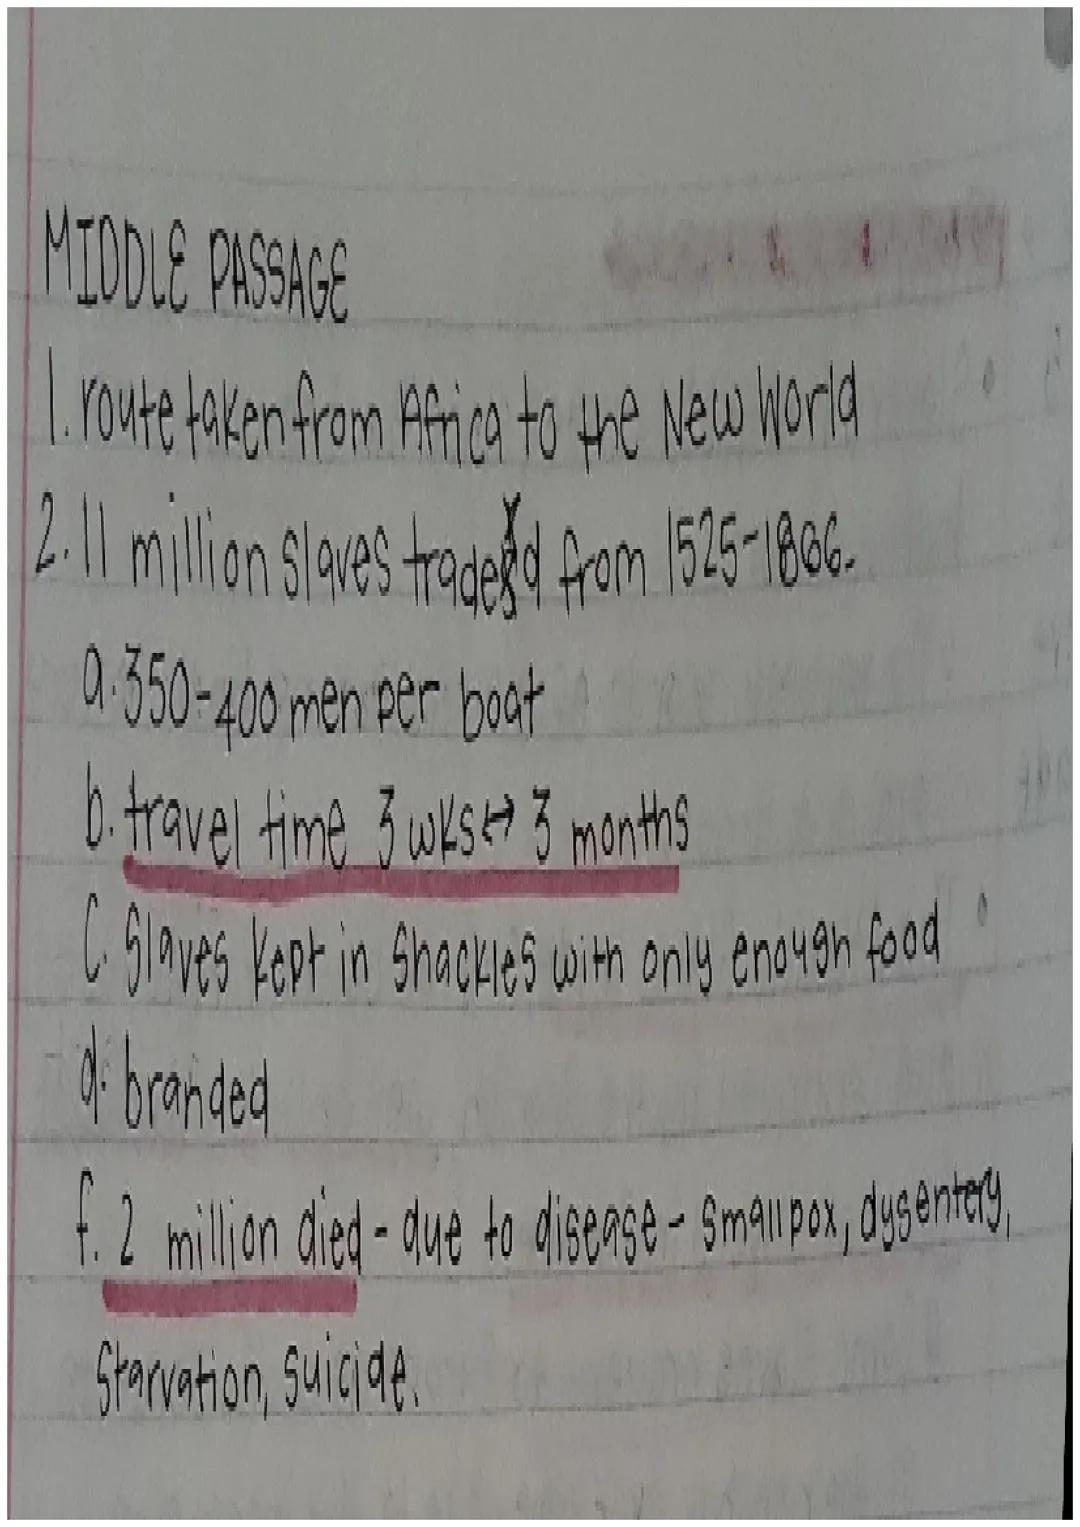 MIDDLE PASSAGE
1. route taken from Africa to the New World
2. 11 million slaves traded from 1525-1866.
a. 350-400 men per boat
b. travel time 3 wks ↔ 3 months
C. Slaves kept in Shackles with only enough food
d. branded
f. 2 million died - due to disease - smallpox, dysentery,
Starvation, suicide.